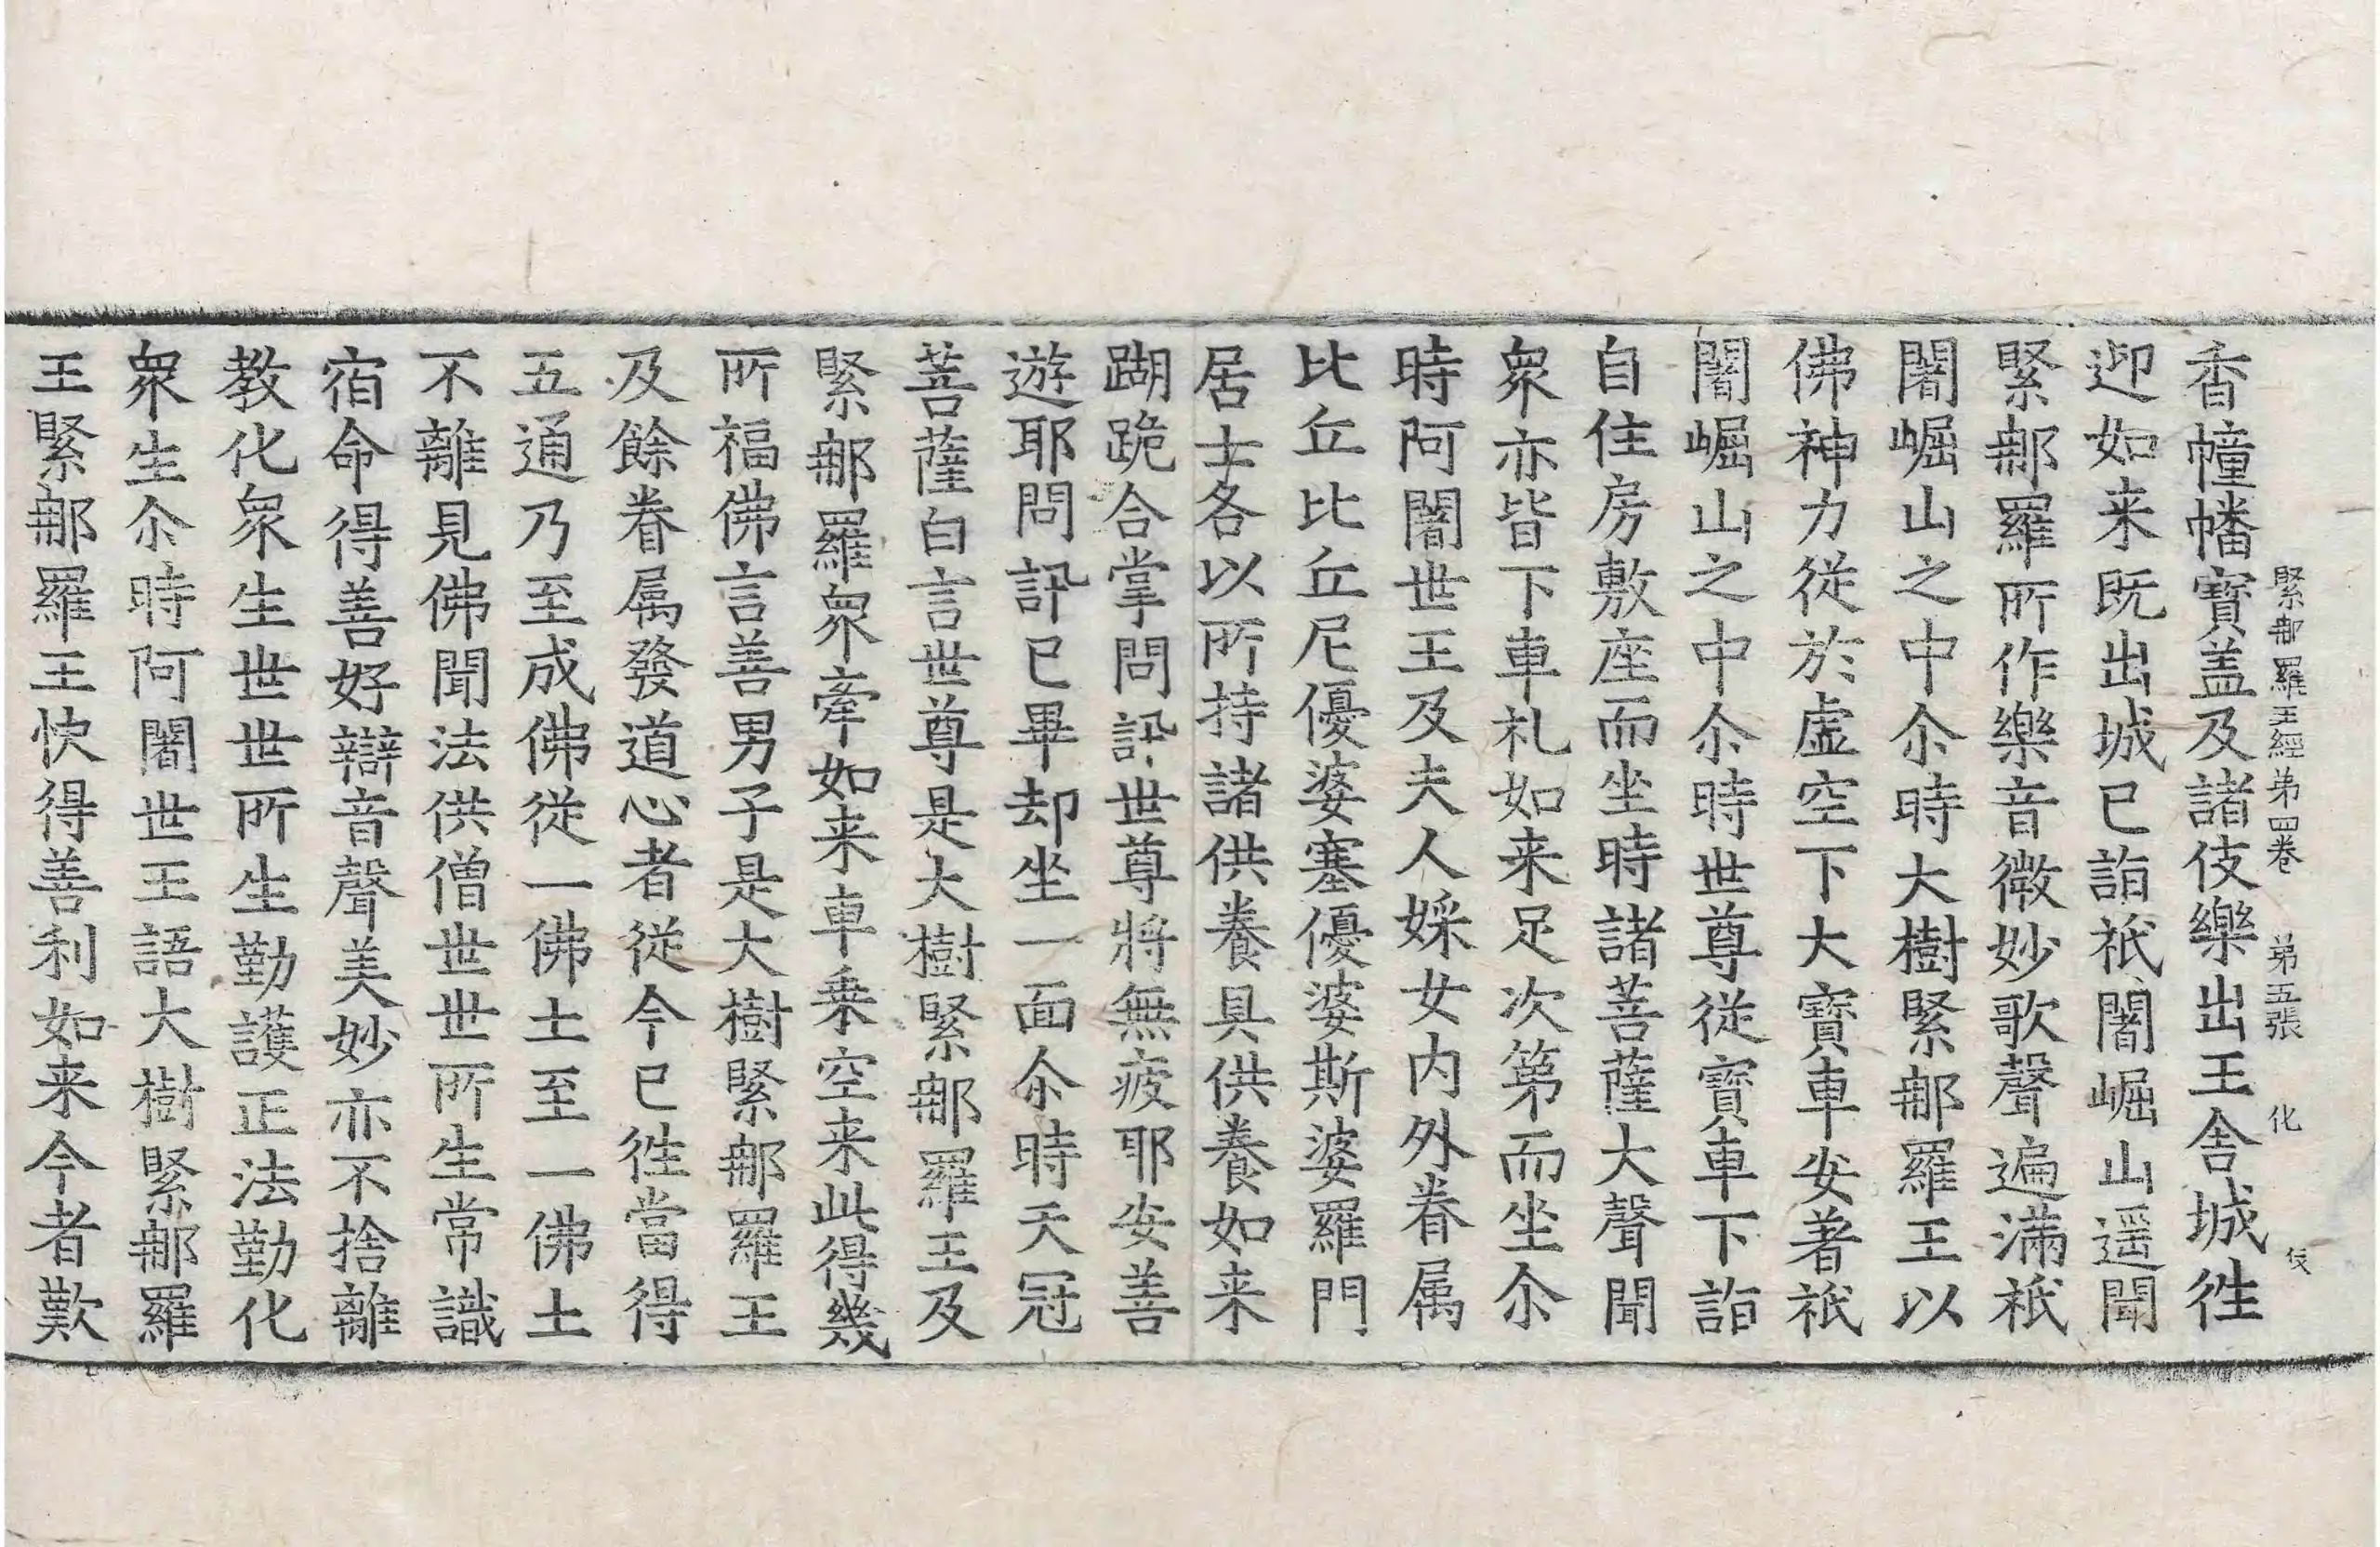 緊那羅王經第四卷 第五張 化
香幢幡寶盖及諸伎樂出王舍城徃
迎如来既出城已詣祇闍崛山遥聞
緊那羅所作樂音微妙歌聲遍滿祇
闍崛山之中尒時大樹緊那羅王以
佛神力從於虛空下大寶車安著祇
闍崛山之中尒時世尊從寶車下詣
自住房敷座而坐時諸菩薩大聲聞
衆亦皆下車礼如来足次第而坐尒
時阿闍世王及夫人婇女内外眷属
比丘比丘尼優婆塞優婆斯婆羅門
居士各以所持諸供養具供養如来
䠒跪合掌問訊世尊將無疲耶安善
遊耶問訊已畢却坐一面尒時天冠
菩薩白言世尊是大樹緊那羅王及
緊那羅衆牽如来車乗空来此得幾
所福佛言善男子是大樹緊那羅王
及餘眷属發道心者從今已徃當得
五通乃至成佛從一佛土至一佛土
不離見佛聞法供僧世世所生常識
宿命得善好辯音聲美妙亦不捨離
教化衆生世世所生勤護正法勤化
衆生尒時阿闍世王語大樹緊那羅
王緊那羅王快得善利如来今者歎